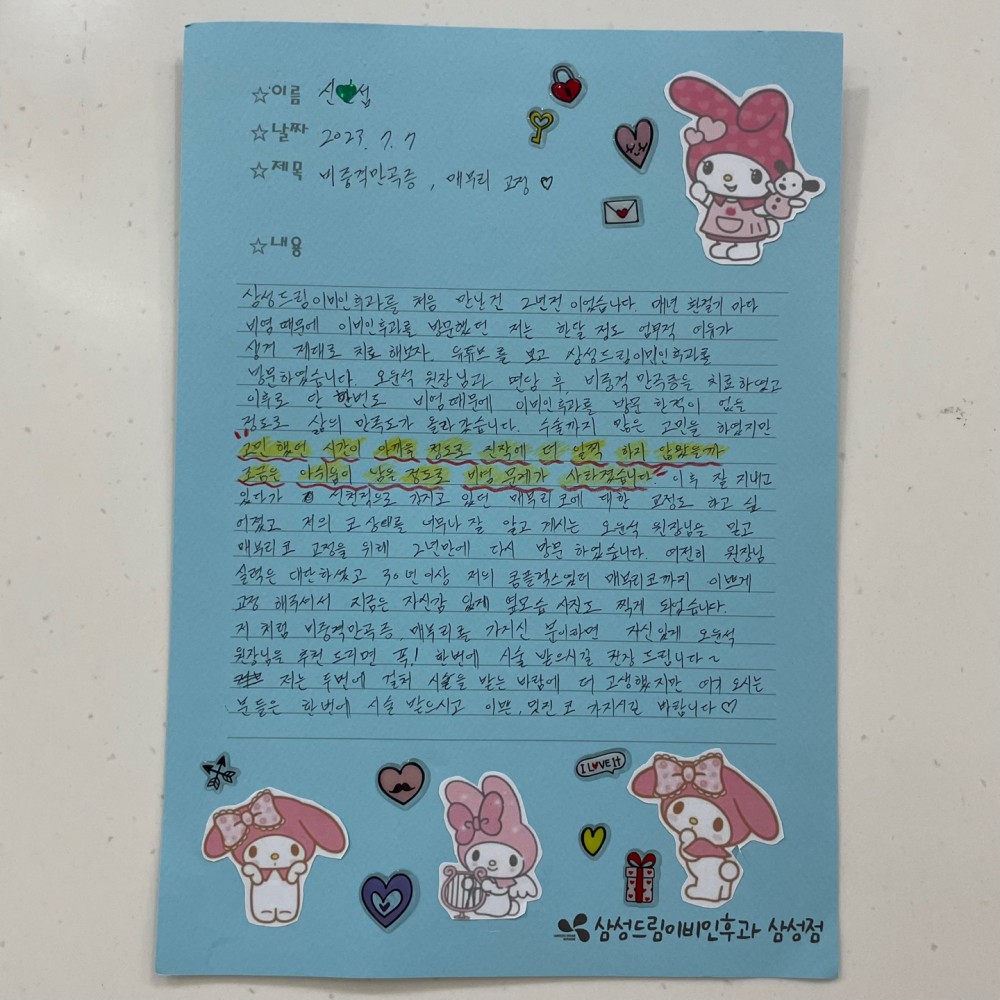 ☆이름 신 섭
☆날짜 2023. 7. 7
☆제목 비중격만곡증, 매부리 교정 ♡
☆내용
삼성드림이비인후과를 처음 만난건 2년전 이었습니다. 매년 환절기 마다
비염때문에 이비인후과를 방문했던 저는 한달 정도 업무적 여유가
생겨 제대로 치료 해보자, 유튜브를 보고 삼성드림이비인후과를
방문하였습니다. 오문석 원장님과 면담 후, 비중격 만곡증을 치료하였고
이후로 단 한번도 비염때문에 이비인후과를 방문 한적이 없을
정도로 삶의 만족도가 올라갔습니다. 수술까지 많은 고민을 하였지만
"고민했던 시간이 아까울 정도로 진작에 더 일찍 하지 않았을까
조금은 아쉬움이 남을 정도로 비염 무게가 사라졌습니다" 이후 잘 지내고
있다가 선천적으로 가지고 있던 매부리코에 대한 교정도 하고 싶
어졌고 저의 코 상태를 너무나 잘 알고 계시는 오문석 원장님을 믿고
매부리코 교정을 위해 2년만에 다시 방문 하였습니다. 여전히 원장님
실력은 대단하셨고 30년이상 저의 콤플렉스였던 매부리코까지 이쁘게
교정 해주셔서 지금은 자신감 있게 옆모습 사진도 찍게 되었습니다.
저 처럼 비중격만곡증, 매부리를 가지신 분이라면 자신있게 오문석
원장님을 추천 드리면 꼭! 한번에 시술 받으시길 권장 드립니다~
저는 두번에 걸쳐 시술을 받는 바람에 더 고생했지만 여기 오시는
분들은 한번에 시술 받으시고 이쁜, 멋진 코 가지시길 바랍니다♡
I LOVE IT
삼성드림이비인후과 삼성점